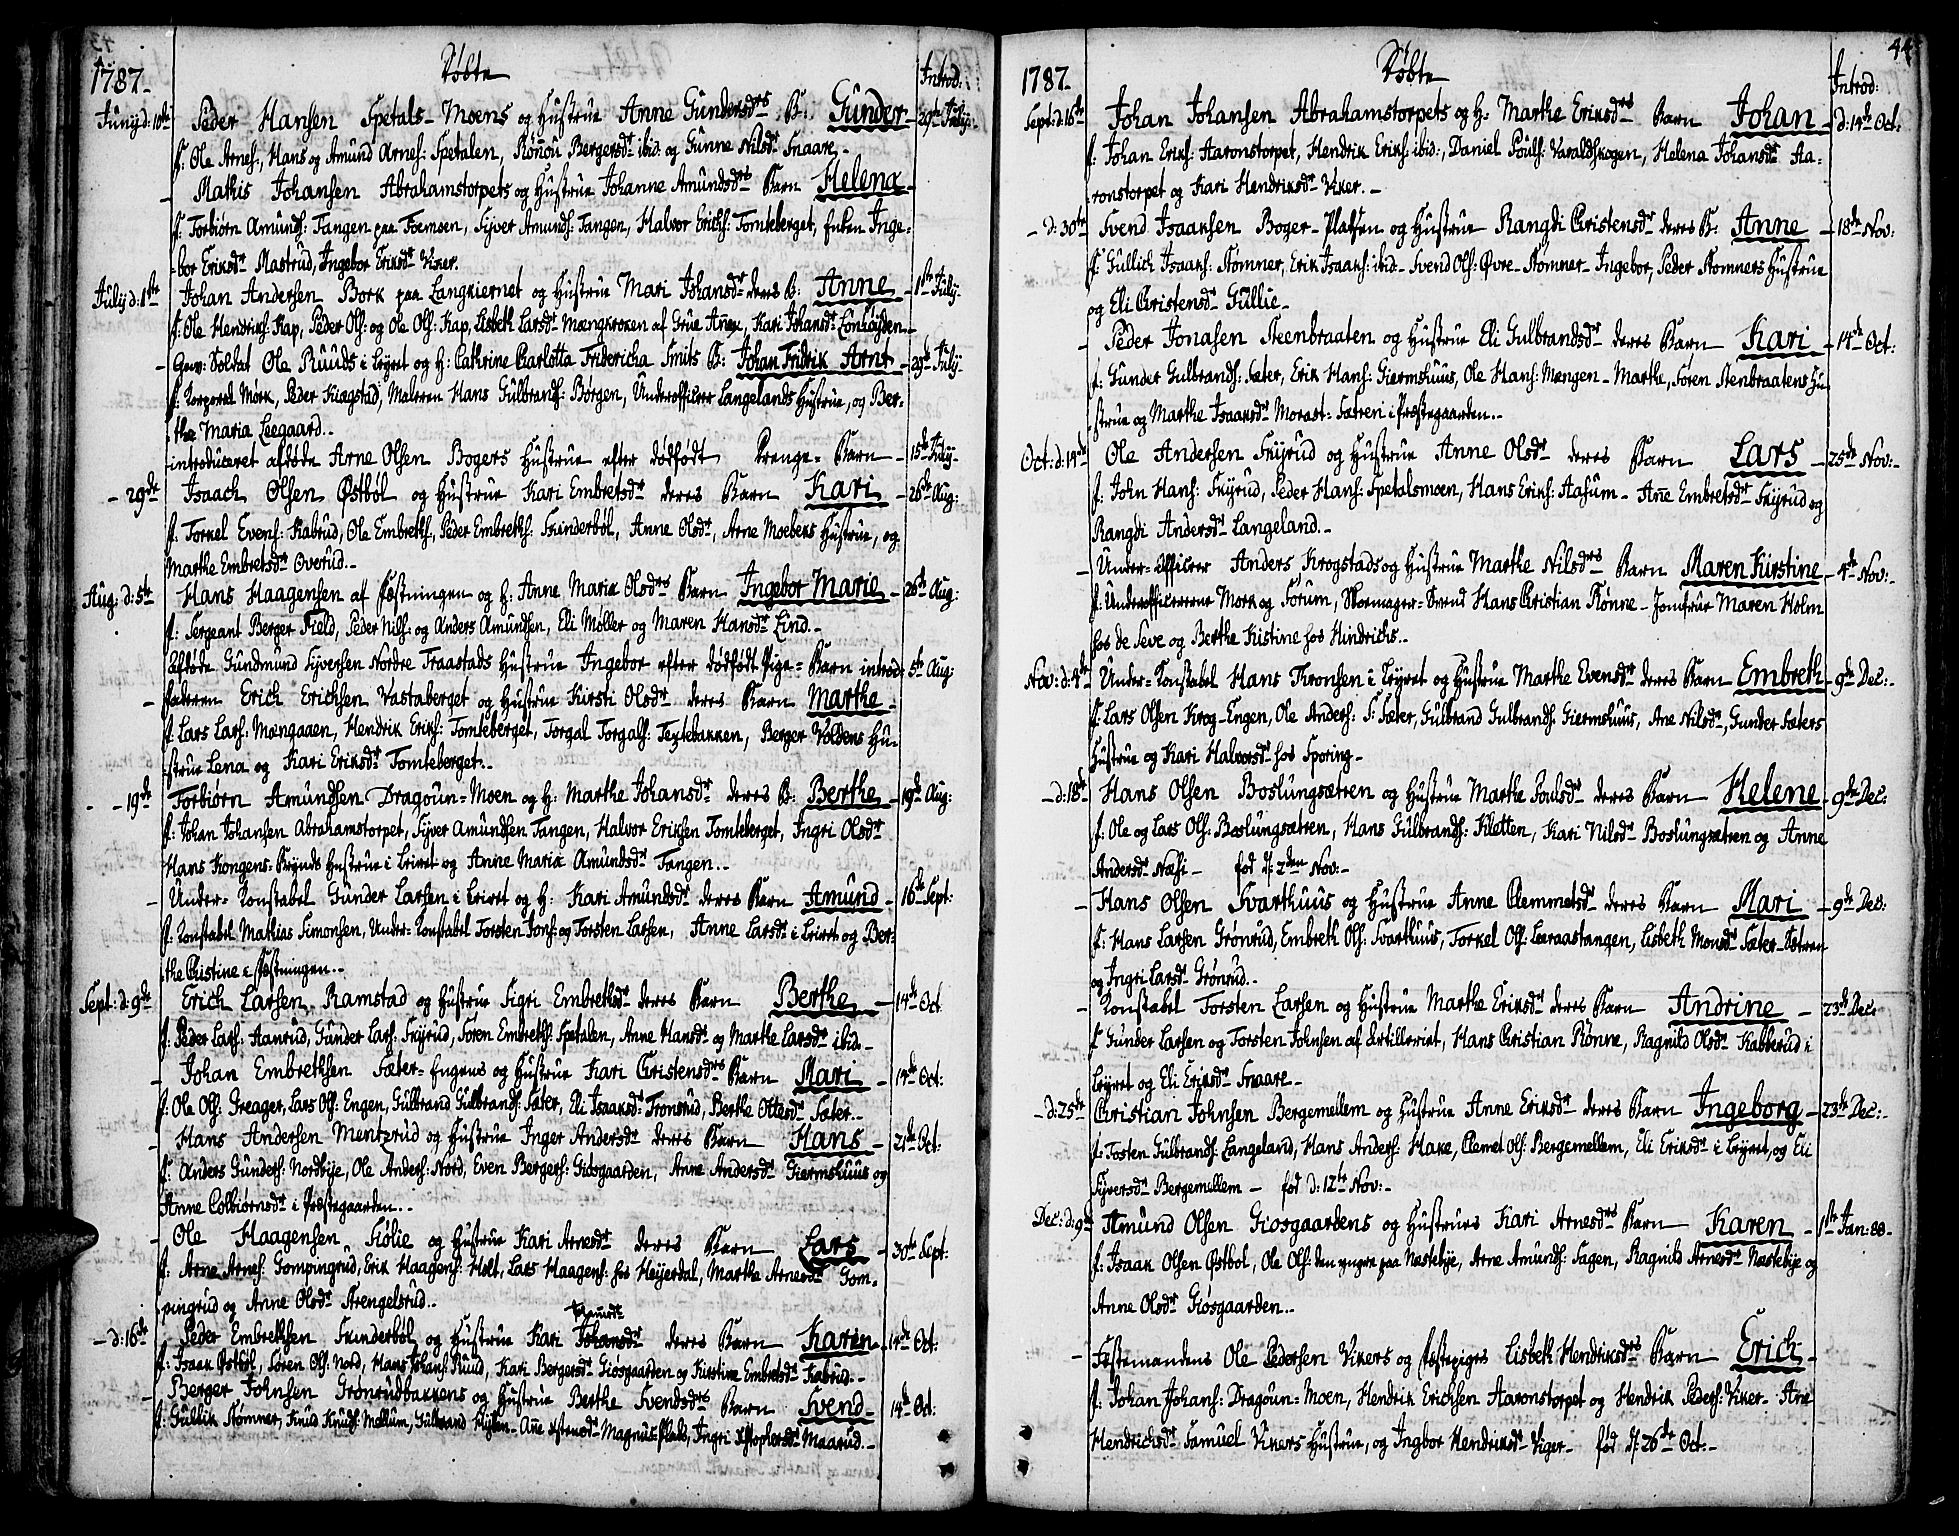 1787.
Döbte
Introd:
Juny d: 10de Peder Hansen Spetals-Moens og Hustrue Anne Gundersdrs B: Gunder - 29de July
f: Ole Arnes:, Hans og Amund Arnes: Spetalen, Rönnou Bergersdr ibid: og Gunne Nilsdr Snaare.-
- Mathis Johansen Abrahamstorpets og Hustrue Johanne Amundsdrs Barn Helena -
f: Torbiörn Amunds: Tangen paa Toemsen, Syver Amunds: Tangen, Halvor Erichs: Tomteberget, Enken Inge-
bor Eriksdr Mastrud, Ingebor Eriksdr Viker.
July d: 1ste Johan Andersen Bork paa Langkiernet og Hustrue Mari Johansdr deres B: Anne - 1ste July-
f: Ole Hendriks: Kap, Peder Ols: og Ole Ols: Kap, Lisbeth Larsdr Mængkroken af Grue Anex, Kari Johansdr Lönhöyden-
- Gev: Soldat Ole Ruuds i Leyret og H: Cathrine Carlotta Fridericha Smits B: Johan Fridrik Arnt - 29de July-
f: Korporal Mörk, Peder Kragstad, Maleren Hans Gulbrands: Börgen, Underofficer Langelands Hustrue, og Ber-
the Maria Leegaard.-
introduceret afdöde Arne Olsen Bogers Hustrue efter dödfödt Drenge-Barn - 15de July-
- 29de Isaach Olsen Östböl og Hustrue Kari Embretsdr deres Barn Kari - 26de Aug:
f: Torkel Evens: Kabrud, Ole Embreths:, Peder Embreths: Skinderböl, Anne Olsdr, Arne Moebeks Hustrue, og
Marthe Embretsdr Overud.-
Aug: d: 5te Hans Haagensen af Fæstningen og H: Anne Maria Olsdrs Barn Ingebor Marie - 26de Aug:
f: Sergeant Berger Field, Peder Nils: og Anders Amundsen, Eli Möller og Maren Hansdr Lind.-
Afdöde Gundmund Syversen Nordre Traastads Hustrue Ingebor efter dödfödt Pige-Barn introd: 5te Aug:
- Faderen Erich Erichsen Vastaberget og Hustrue Kirsti Olsdr deres Barn Marthe -
f: Lars Lars: Mængaaen, Hendrik Eriks: Tomteberget, Torgal Torgals: Textebakken, Berger Voldens Hu-
strue Lena og Kari Eriksdr Tomteberget.-
- 19de Torbiörn Amundsen Dragoun-Moen og H: Marthe Johansdr deres B: Berthe - 19de Aug:
f: Johan Johansen Abrahamstorpet, Syver Amundsen Tangen, Halvor Eriksen Tomteberget, Ingri Olsdr
Hans Kongens-Brynds Hustrue i Leiret og Anne Maria Amundsdr Tangen.-
- Under-Konstabel Gunder Larsen i Leiret og H: Kari Amundsdr deres Barn Amund - 16de Sept:
f: Konstabel Mathias Simonsen, Under-Konstabel Torsten Jons: og Torsten Larsen, Anne Larsdr i Leiret og Ber-
the Christine i Fæstningen.-
Sept: d: 9de Erich Larsen Ramstad og Hustrue Sigri Embrethsdr deres Barn Berthe - 14de Oct
f: Peder Lars: Aanrud, Gunder Lars: Skyrud, Sören Embreths: Spetalen, Anne Hansdr og Marthe Larsdr ibid.-
- Johan Embrethsen Sæter-Engens og Hustrue Kari Christensdrs Barn Mari - 14de Oct:
f: Ole Ols: Greager, Lars Ols: Engen, Gulbrand Gulbrands: Sæter, Eli Isaaksdr Tronsrud, Berthe Ottesdr Sæter.-
- Hans Andersen Mentzrud og Hustrue Inger Andersdr deres Barn Hans - 21de Oct:
f: Anders Gunders: Nordbye, Ole Anders: Nord, Even Bergers: Gidsgaarden, Anne Andersdr Giermshuus og
Anne Colbiörnsdr i Præstegaarden.-
- Ole Haagensen Siölie og Hustrue Kari Arnesdr deres Barn Lars - 30te Sept:
f: Arne Arnes: Gompingrud, Erik Haagens: Holt, Lars Haagens: hos Heyerdal, Marthe Arnesdr Gom-
pingrud og Anne Olsdr Strengelsrud.-
- d: 16de Peder Embrethsen Skinderböl og Hustrue Kari Johansdr deres Barn Karen - 14de Oct:
f: Isaak Östböl, Sören Ols: Nord, Hans Johans: Ruud, Kari Bergersdr Giösgaarden og Kirstine Embretsdr Kabrud.-
- Berger Johnsen Grönrudbakkens og Hustrue Berthe Svendsdrs Barn Svend - 14de Oct:
f: Gullik Stömner, Knud Knuds: Mellum, Gulbrand Klyten - Anne Xstensdr Magnus-Plads, Ingri Xstophersdr Maarud.-
44
1787.
Döbte
Introd:
Sept: d: 16de Johan Johansen Abrahamstorpets og H: Marthe Eriksdrs Barn Johan - d: 14de Oct:
f: Johan Eriks: Aaronstorpet, Hendrik Eriks: ibid:, Daniel Pouls: Varaldskogen, Helena Johansdr Aa-
ronstorpet og Kari Hendriksdr Viker.-
- d: 30te Svend Isaaksen Boger-Platsen og Hustrue Rangdi Christensdr deres B: Anne - 18de Nov:
f: Gullich Isaaks: Stömner, Erik Isaaks: ibid - Svend Ols: Övre-Stömner - Ingebor, Peder Stömners Hustrue
og Eli Christensdr Gullie-
- Peder Jonasen Steenbraaten og Hustrue Eli Gulbrandsdr deres Barn Kari - 14de Oct:
f: Gunder Gulbrands: Sæter, Erik Hans: Giermshuus, Ole Hans: Mængen - Marthe, Sören Stenbraatens Hu-
strue og Marthe Isaaksdr Morast-Sætren i Præstegaarden.-
Oct: d: 14de Ole Andersen Skyrud og Hustrue Anne Olsdr deres Barn Lars - 25de Nov:-
f: John Hans: Skyrud, Peder Hans: Spetalsmoen, Hans Eriks: Aasum - Ane Embretsdr Skyrud og
Rangdi Andersdr Langeland.-
- Under-Officer Anders Krogstads og Hustrue Marthe Nilsdrs Barn Maren Kirstine - 4de Nov:-
f: Underofficererne Mork og Sorum, Skomager-Svend Hans Christian Rönne - Jomfrue Maren Holm
hos de Seve og Berthe Kistine hos Hindrichs.-
Nov: d: 4de Under-Konstabel Hans Thronsen i Leyret og Hustrue Marthe Evensdr deres Barn Embreth - 9de Dec:-
f: Lars Olsen Krog-Engen, Ole Anders: S: Sæter, Gulbrand Gulbrands: Giermshuus, Ane Nilsdr, Gunder Sæters
Hustrue og Kari Halvorsdr hos Sporing-
- d: 18de Hans Olsen Boslungsætren og Hustrue Marthe Poulsdr deres Barn Helene - 9de Dec:
f: Ole og Lars Ols: Boslungsætren, Hans Gulbrands: Kletten, Kari Nilsdr Boslungsætren og Anne
Andersdr Næsi - föd d: 2den Nov:-
- Hans Olsen Svarthuus og Hustrue Anne Clemmetsdr deres Barn Mari - 9de Dec:
f: Hans Larsen Grönrud, Embreth Ols: Svarthuus, Torkel Ols: Læraastangen, Lisbeth Monsdr Sæter-Sætren
og Ingri Larsdr Grönrud.-
- Konstabel Torsten Larsen og Hustrue Marthe Eriksdr deres Barn Andrine - 23de Dec:
f: Gunder Larsen og Torsten Johnsen af Artilleriet, Hans Christian Rönne, Ragnild Olsdr Kabberud i
Leyret og Eli Eriksdr Snaare-
- d: 25de Christian Johnsen Bergemellem og Hustrue Anne Eriksdr deres Barn Ingeborg - 23de Dec:-
f: Tosten Gulbrands: Langeland, Hans Anders: Hake, Clemet Ols: Bergemellem, Eli Eriksdr i Leyret, og Eli
Syversdr Bergemellem - föd d: 12te Nov:-
Dec: d: 9de Amund Olsen Giosgaardens og Hustrues Kari Arnesdrs Barn Karen - 1ste Jan: 88-
f: Isaak Olsen Östböl, Ole Ols: den yngere paa Næstebye, Arne Amunds: Sagen, Ragnild Arnesdr Næstebye og
Anne Olsdr Giösgaarden.-
- Fæstemandens Ole Pedersen Vikers og Fæstepiges Lisbeth Hendriksdrs Barn Erich -
f: Johan Johans: Dragoun-Moen, Hendrik Erichsen Aaronstorpet og Hendrik Peders: Viker - Ane
Hendrichsdr Samuel Vikers Hustrue, og Ingbor Hendriksdr Viger - föd d: 26de Oct:-